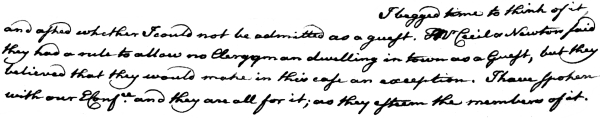 I begged time to think of it,
and asked whether I could not be admitted as a guest. Mr Cecil & Newton said
they had a rule to allow no Clergyman dwelling in town as a Guest, but they
believed that they would make in this case an exception. I have spoken
with our Conf.ce and they are all for it; as they esteem the members of it.